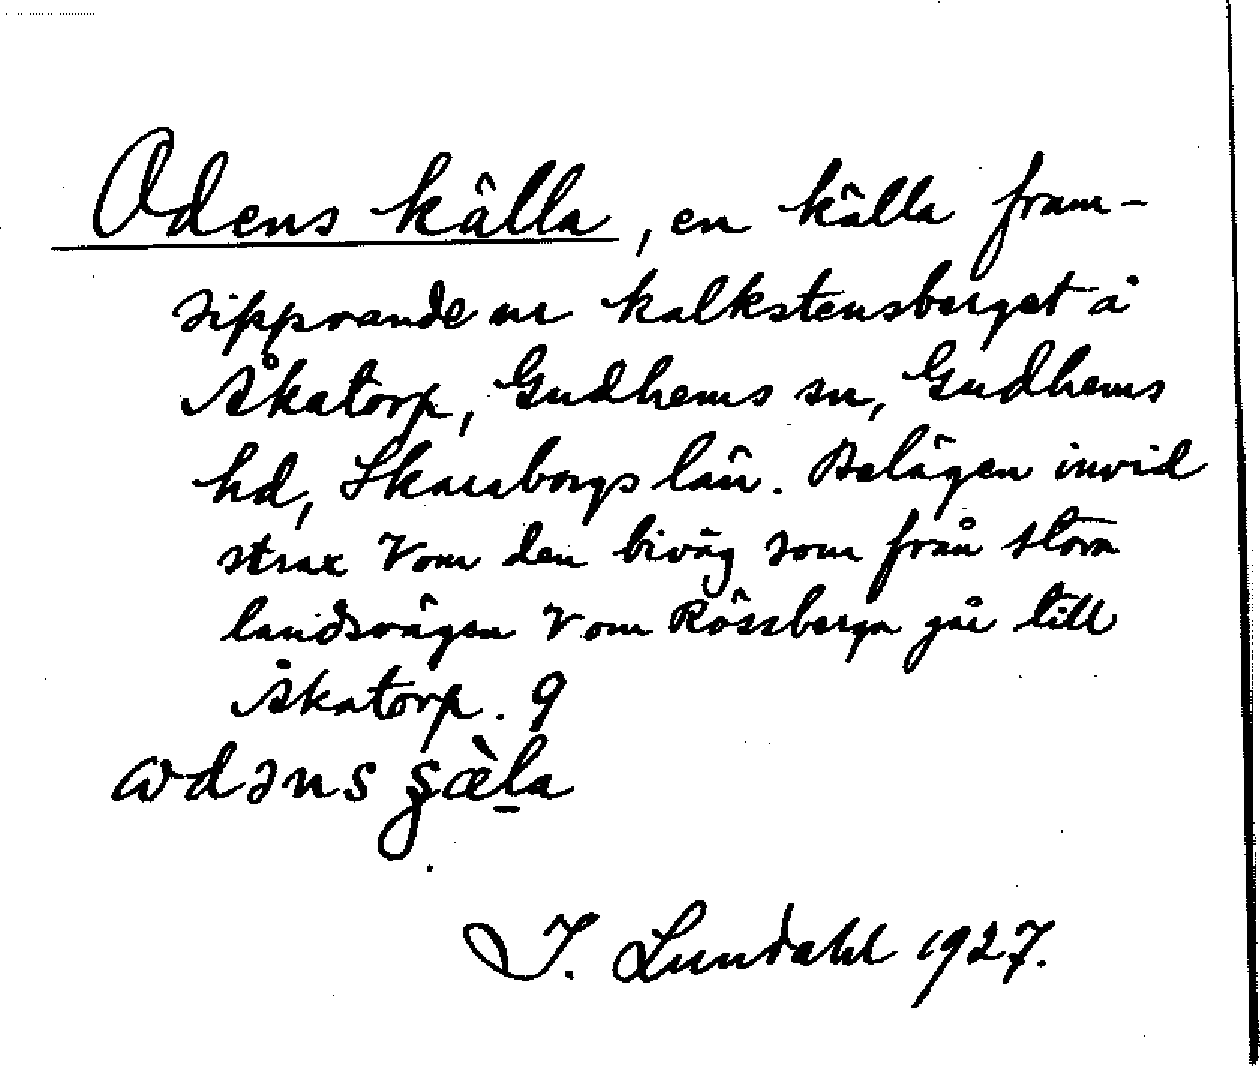 Odens källa, en källa fram-
sipprande ur kalkstensberget å
Åkatorp, Gudhems sn, Gudhems
hd, Skaraborgs län. Belägen invid
strax V om den biväg som från stora
landsvägen V om Rössberga går till
Åkatorp. 9
ɷdəns
I. Lundahl 1927.